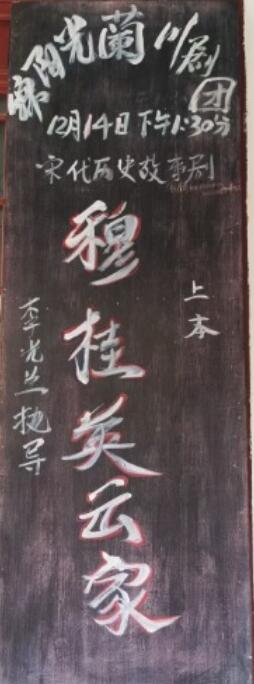 阳光蘭川剧团
12月14日下午1:30分
宋代历史故事剧
上本
穆桂英云家
李光兰执导